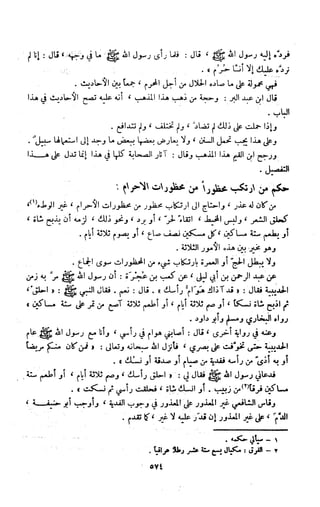 فرده إليه رسول الله ﷺ ، قال : فلما رأى رسول الله ﷺ ما في وجهه ، قال : إنا لم
نرده عليك إلا أنا حُرُم » .
فهي محمولة على ما صاده الحلال من أجل المحرم ، جمعاً بين الأحاديث .
قال ابن عبد البر : وحجة من ذهب هذا المذهب ، أنه عليه تصح الأحاديث في هذا
الباب .
وإذا حملت على ذلك لم تضاد ، ولم تختلف ، ولم تتدافع .
وعلى هذا يجب تحمل السنن ، ولا يعارض بعضها ببعض ما وجد إلى استعمالها سبيل .
ورجح ابن القيم هذا المذهب وقال : آثار الصحابة كلها في هذا إنما تدل على هــذا
التفصيل .
حكم من ارتكب محظوراً من محظورات الإحرام :
من كان له عذر ، واحتاج إلى ارتكاب محظور من محظورات الإحرام ، غير الوطء(١)
كحلق الشعر ، ولبس المخيط ، اتقاء لحر ، أو برد ، ونحو ذلك ، لزمه أن يذبح شاة ،
أو يطعم ستة مساكين ، كل مسكين نصف صاع ، أو يصوم ثلاثة أيام .
وهو مخير بين هذه الأمور الثلاثة .
ولا يبطل الحج أو العمرة بارتكاب شيء من المحظورات سوى الجماع .
عن عبد الرحمن بن أبي ليلى ، عن كعب بن عجرة : أن رسول الله ﷺ مر به زمن
الحديبية فقال : « قد آذاك هوام رأسك » . قال : نعم . فقال النبي ﷺ : « احلق ،
ثم اذبح شاة نسكاً ، أو صم ثلاثة أيام ، أو أطعم ثلاثة آصع من تمر على ستة مساكين »
رواه البخاري ومسلم وأبو داود .
وعنه في رواية أخرى ، قال : أصابني هوام في رأسي ، وأنا مع رسول الله ﷺ عام
الحديبية حتى تخوفت على بصري ، فأنزل الله سبحانه وتعالى : « فمن كان منكم مريضاً
أو به أذى من رأسه ففدية من صيام أو صدقة أو نسك » .
فدعاني رسول الله ﷺ فقال لي : « احلق رأسك ، وصم ثلاثة أيام ، أو أطعم ستة
مساكين فرقاً(٢) من زبيب . أو انسك شاة ، فحلقت رأسي ثم نسكت » .
وقاس الشافعي غير المعذور على المعذور في وجوب الفدية ، وأوجب أبو حنيفــة ،
الدم ، على غير المعذور إن قدر عليه لا غير ، كما تقدم .
١ - سيأتي حكمه .
٢ - الفرق : مكيال يسع ستة عشر رطلاً عراقياً .
٥٧٤